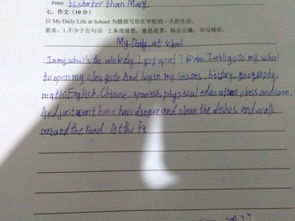 Peter is shorter than Mary.
七、作文（10分）
以 My Daily Life at School 为题描写你在学校的一天的生活。
要求：1.不少于五句话 2.条理清楚，意思连贯，标点正确，书写规范。
My Daily at school
In my school's the I get up at to my school
to open my And began my lessons, history, geography
math English, Chinese, spanish, physical education class and soon.
And just went home have dinner and clean the dishes and walk
around the road. At the